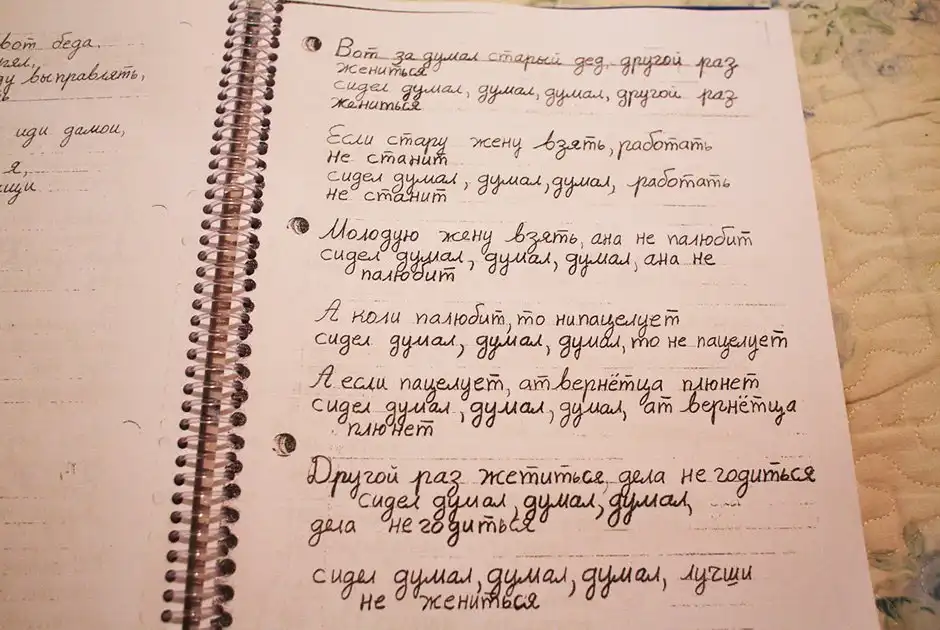 вот беда.
ду выправлять,
иди дамои,
я,
Вот за думал старый дед, другой раз
жениться
сидел думал, думал, думал, другой раз
жениться
Если стару жену взять, работать
не станит
сидел думал, думал, думал, работать
не станит
Молодую жену взять, ана не палюбит
сидел думал, думал, думал, ана не
палюбит
А коли палюбит, то нипацелует
сидел думал, думал, думал, то не пацелует
А если пацелует, атвернётца плюнет
сидел думал, думал, думал, ат вернётца
плюнет
Другой раз жетиться, дела не годиться
сидел думал, думал, думал,
дела не годиться
сидел думал, думал, думал, лучши
не жениться